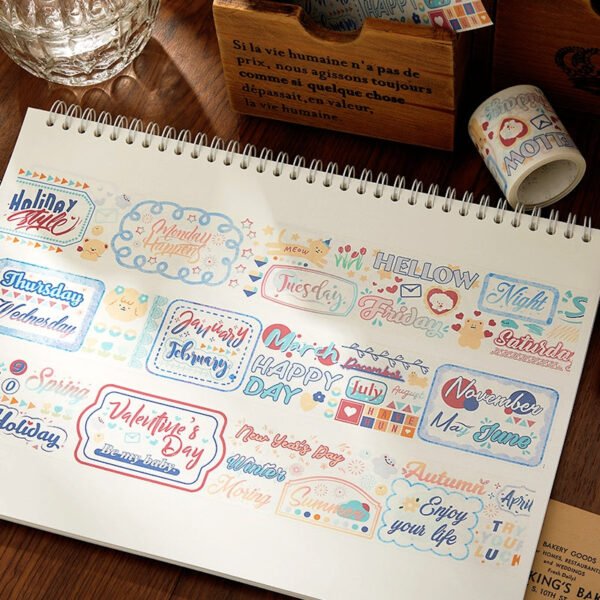 HAPPY
Si la vie humaine n'a pas de
prix, nous agissons toujours
comme si quelque chose
dépassait, en valeur,
la vie humaine.
HOLIDAY
Style
Monday
Happens
MEOW
Tuesday
HELLOW
Friday
Night
Saturday
Thursday
Wednesday
January
February
March
HAPPY
DAY
December
July
August
HAVE
FUN
November
May June
Spring
Holiday
Valentine's
Day
Be my baby
New Year's Day
Winter
Moring
Summer
Autumn
Enjoy
your life
April
TRY
YOUR
LUCK
BAKERY GOODS
HOMES, RESTAURANTS
and WEDDINGS
Fresh Daily!
KING'S BAK
S. 10TH ST